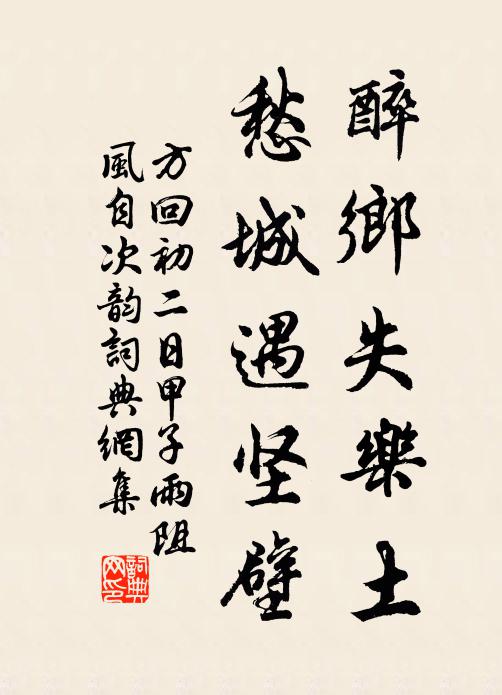 醉鄉失樂土
愁城遇坚壁
方回初二日甲子雨阻
風自次韵詞典網集
詞典
网印